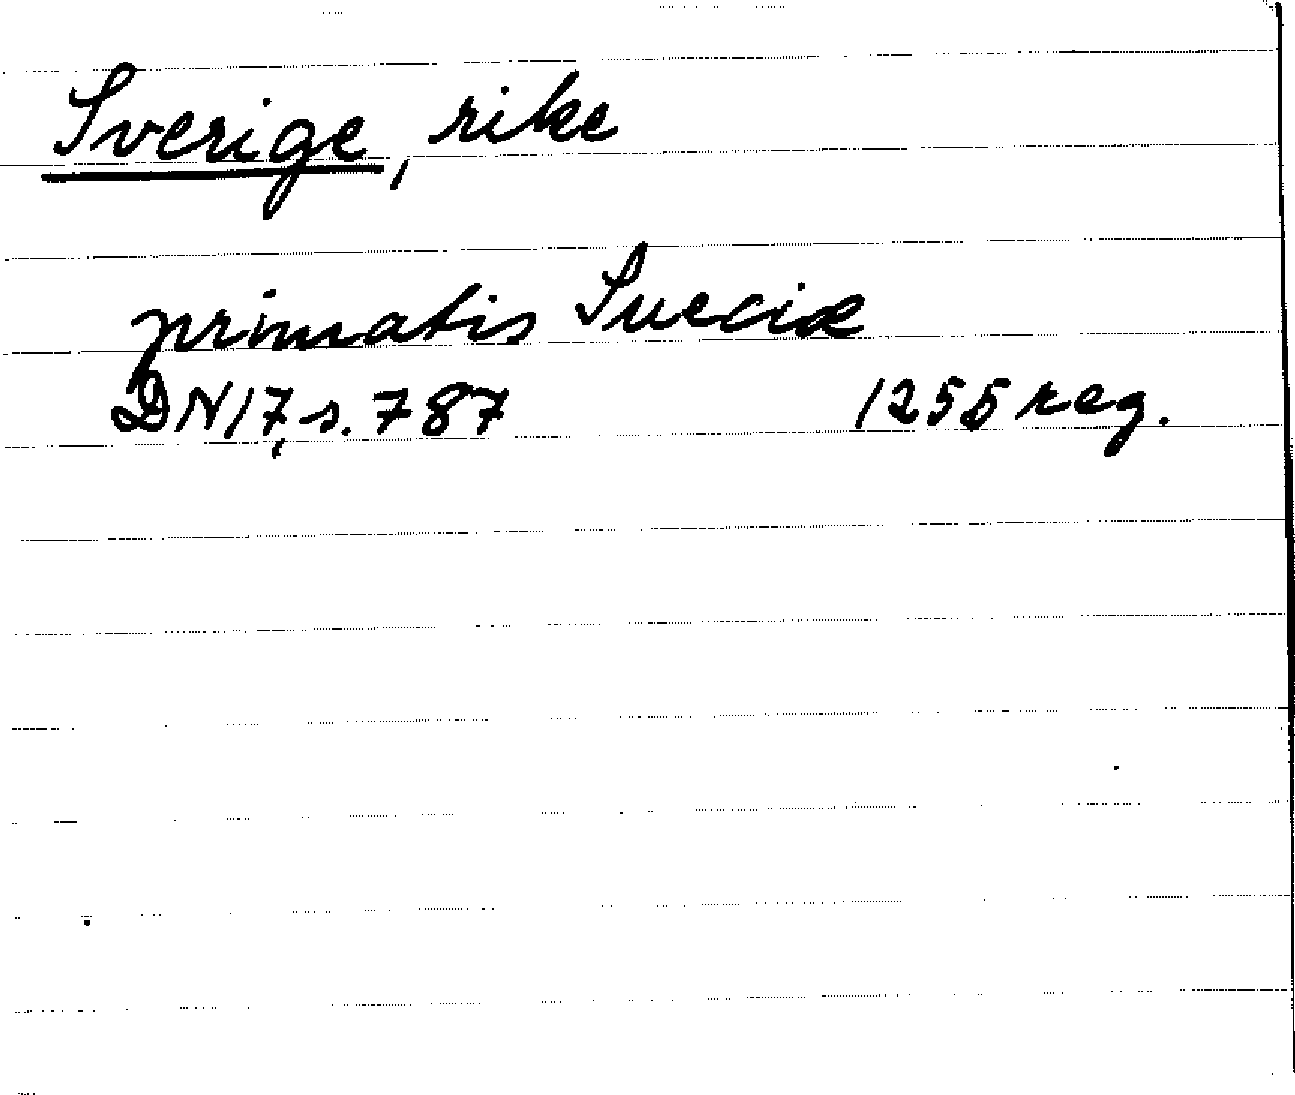 Sverige, rike
primatis Sueciæ
DN17, s. 787 1255 reg.